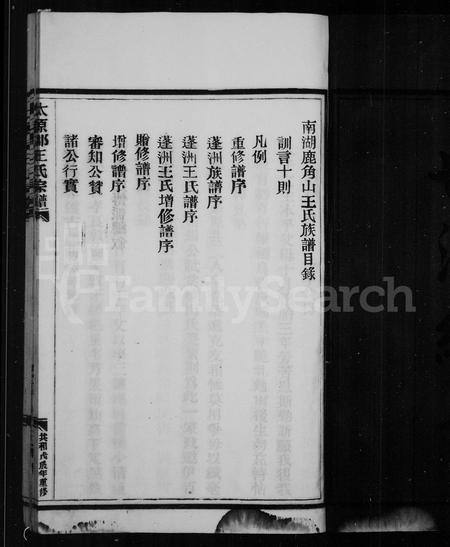 南湖鹿角山王氏族譜目錄
訓言十則
凡例
重修譜序
蓬洲族譜序
蓬洲王氏譜序
蓬洲王氏增修譜序
贈修譜序
增修譜序
審知公贊
諸公行實
太原郡王氏宗譜
共和戊辰年重修
FamilySearch